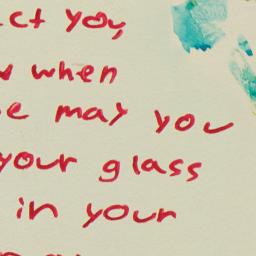 ct you,
when
may you
your glass
in your